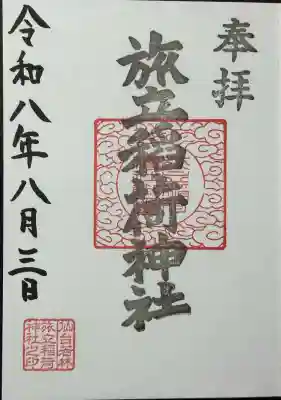 奉拝
旅立稲荷神社
令和八年八月三日
仙台若林
旅立稲荷
神社之印